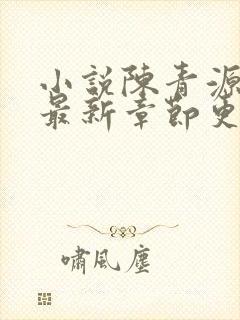 小説陳青源
最新章節更
嘯風塵